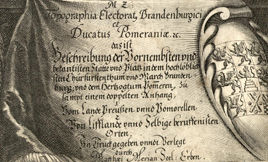 M. Z.
Topographia Electorat, Brandenburgici
et
Ducatus Pomeraniæ. &c.
das ist
Beschreibung der Vornembsten vnd
bekantisten Stätte vnd Plätz in dem hochlöblich
sten Churfürstenthum vnd March Branden
burg; vnd dem Hertzogtum Pomeren, zu
sampt einem doppelten Anhang,
Vom Lande Preussen vnnd Pomerellen
Von Lifflande vnnd Selbige beruffenisten
Orten.
In Truck gegeben vnnd Verlegt
durch
Matthæi Merian Seel: Erben.